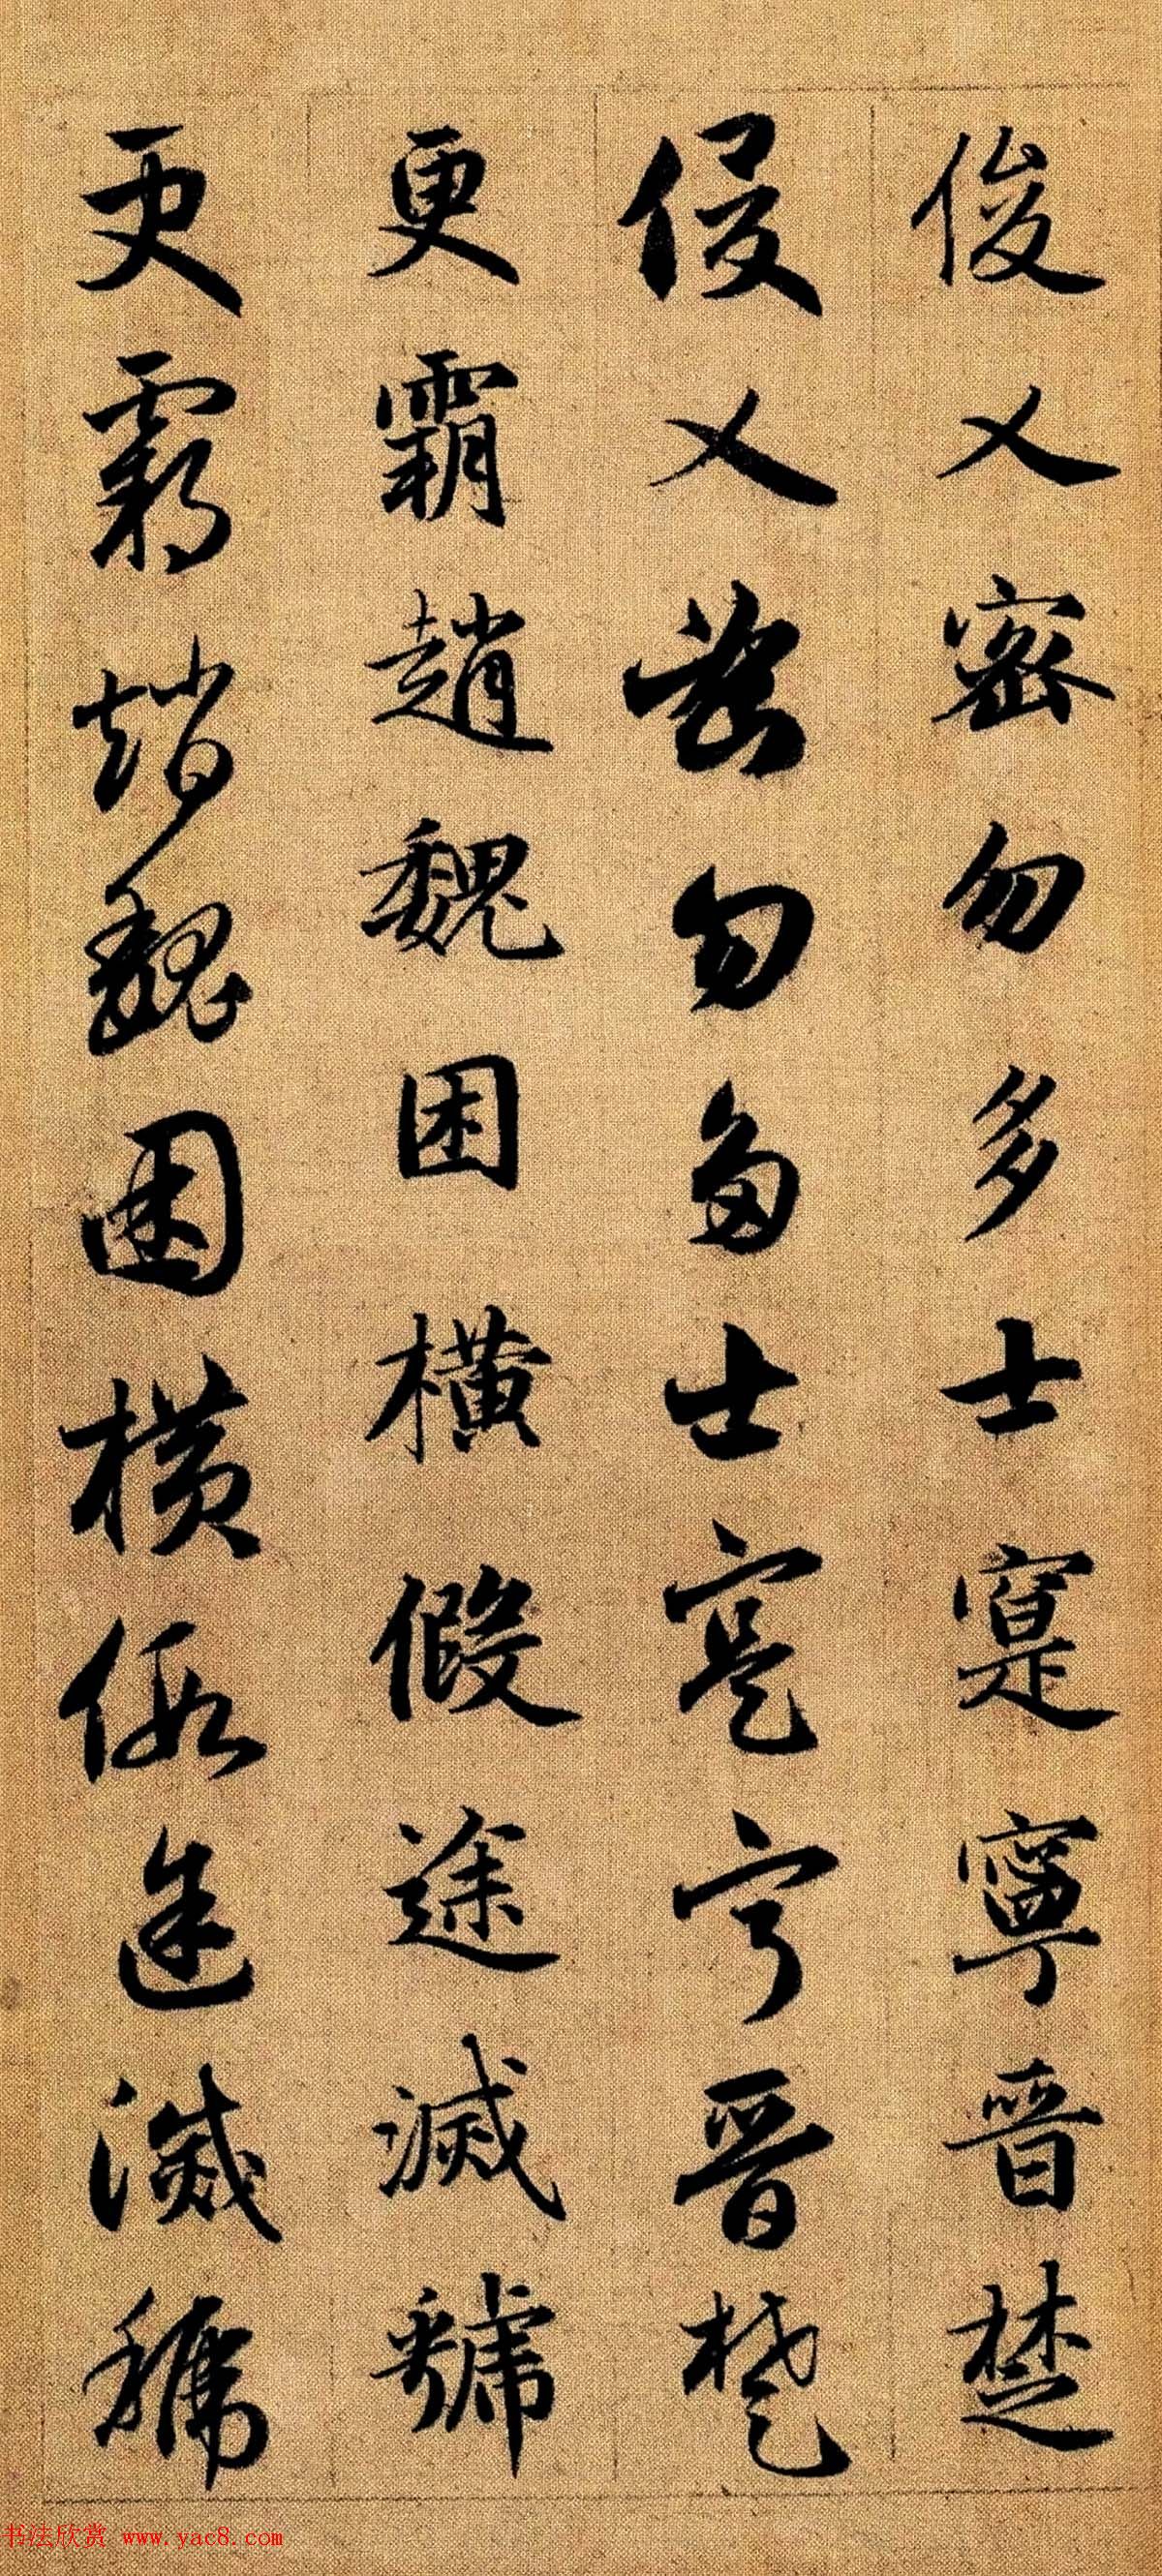 俊乂密勿多士寔寧晉楚
俊乂密勿多士寔寧晉楚
更霸趙魏困橫假途滅虢
更霸趙魏困橫假途滅虢
书法欣赏 www.yac8.com